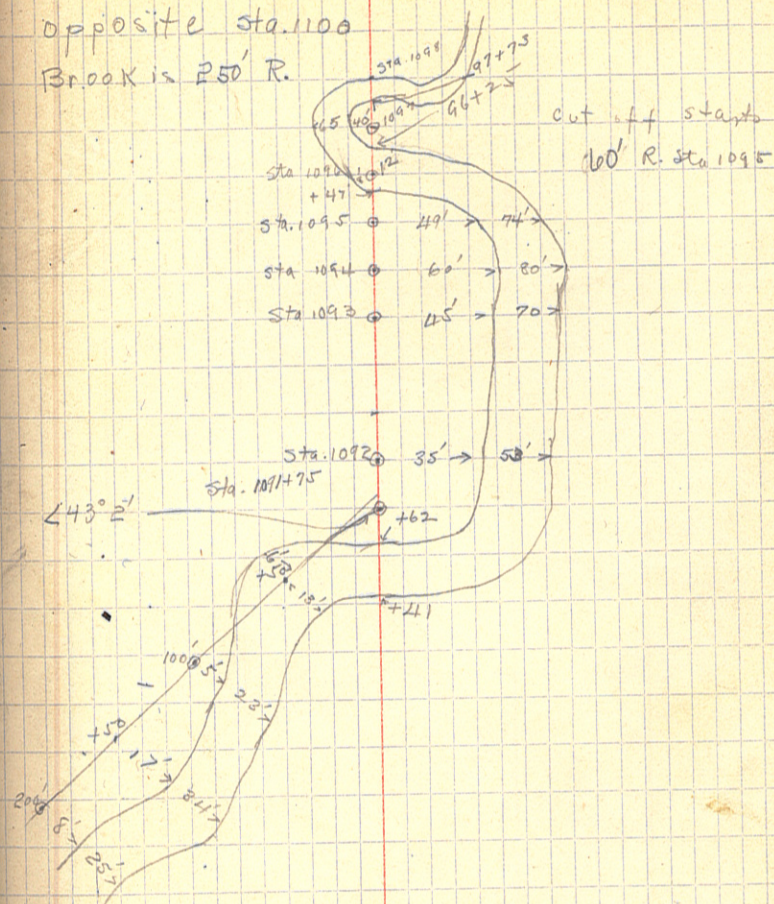 opposite sta. 1100
Brook is 250' R.
Sta. 1098
97+73
96+25
cut off starts
60' R. Sta 1095
65' 40' 1097
Sta 1096 12
+47
Sta. 1095 49' 74'
Sta 1094 60' 80'
Sta 1093 45' 70
Sta. 1092 35'
Sta. 1091+75
∠43° 2'
+62
13'
+41
100' 5'
23'
+50
17'
34'
200'
8'
25'